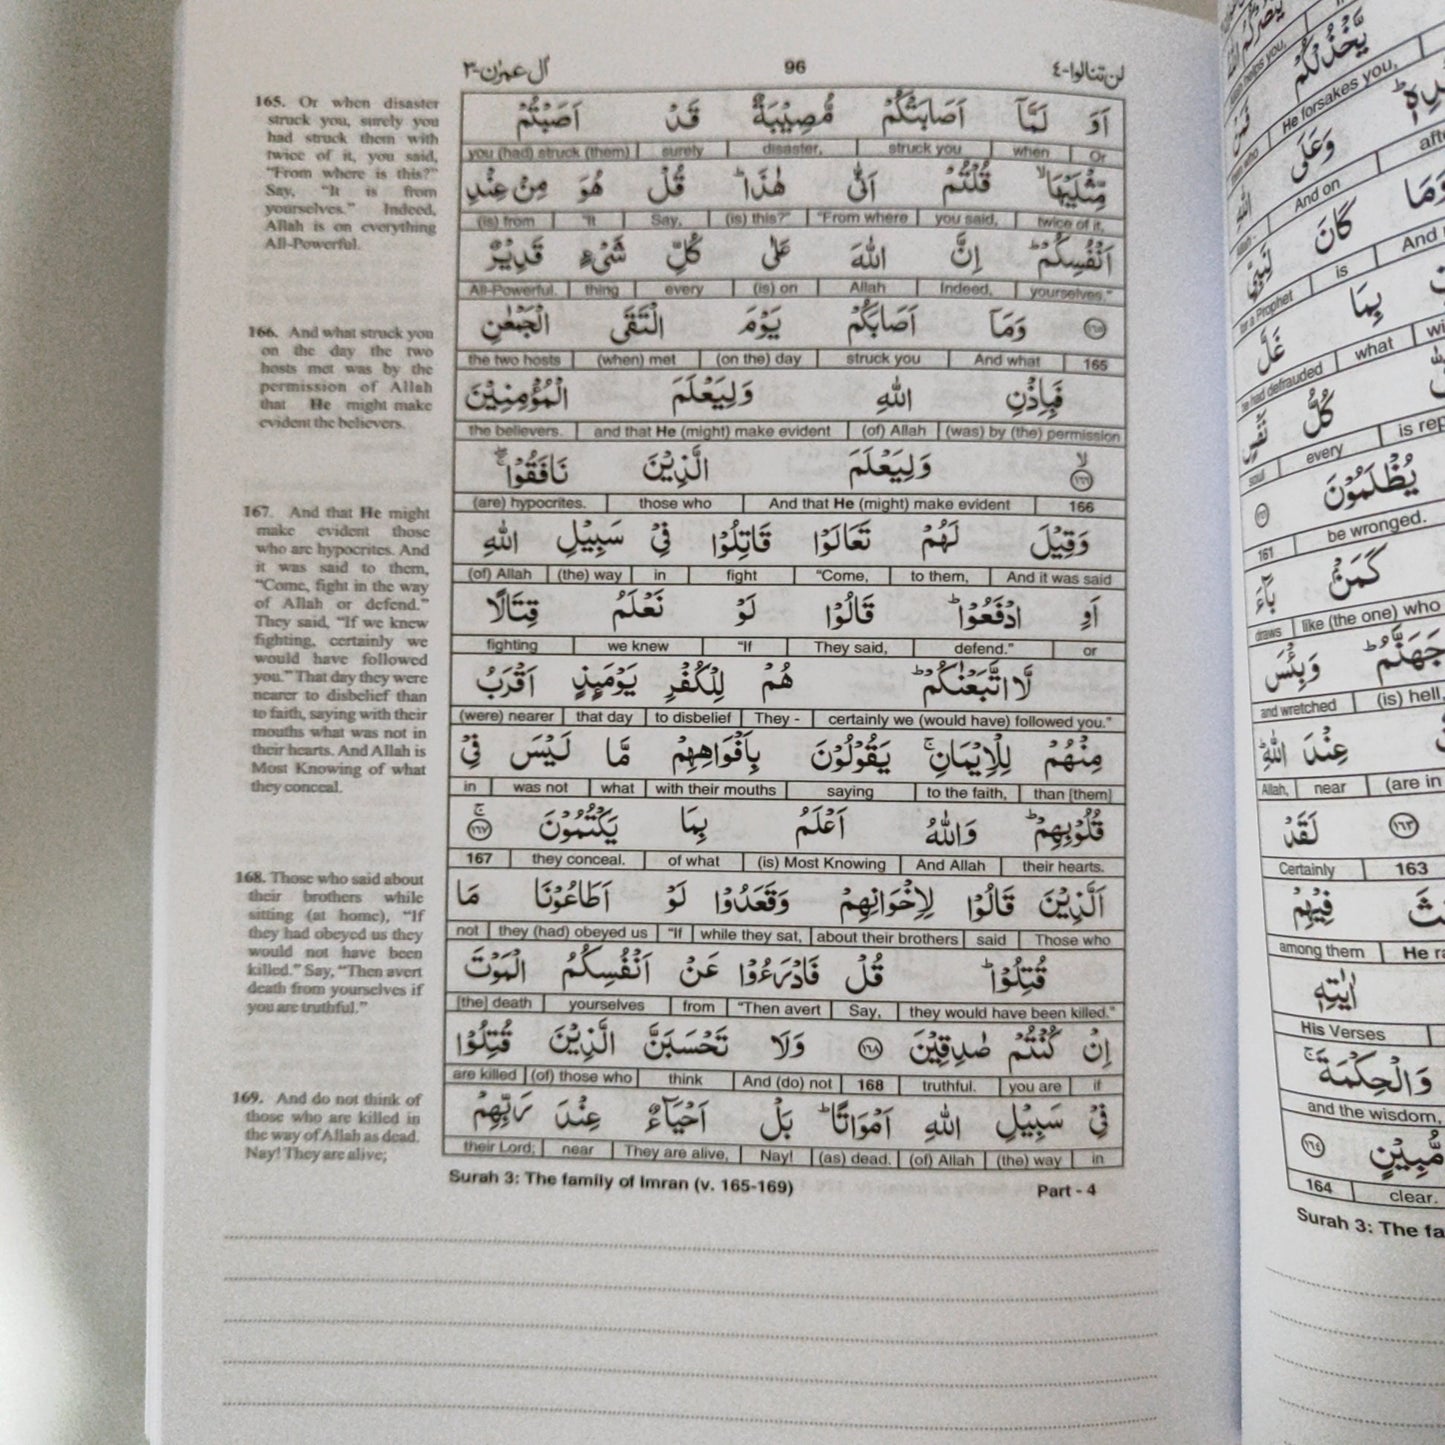 اٰل عمرٰن-٣ 96 لن تنالوا-٤
165. Or when disaster
struck you, surely you
had struck them with
twice of it, you said,
“From where is this?”
Say, “It is from
yourselves.” Indeed,
Allah is on everything
All-Powerful.
166. And what struck you
on the day the two
hosts met was by the
permission of Allah
that He might make
evident the believers.
167. And that He might
make evident those
who are hypocrites. And
it was said to them,
“Come, fight in the way
of Allah or defend.”
They said, “If we knew
fighting, certainly we
would have followed
you.” That day they were
nearer to disbelief than
to faith, saying with their
mouths what was not in
their hearts. And Allah is
Most Knowing of what
they conceal.
168. Those who said about
their brothers while
sitting (at home), “If
they had obeyed us they
would not have been
killed.” Say, “Then avert
death from yourselves if
you are truthful.”
169. And do not think of
those who are killed in
the way of Allah as dead.
Nay! They are alive;
اَوَ لَمَّاۤ اَصَابَتْكُمْ مُّصِيْبَةٌ قَدْ اَصَبْتُمْ
you (had) struck (them) surely disaster, struck you when Or
مِّثْلَيْهَا ۙ قُلْتُمْ اَنّٰى هٰذَا ؕ قُلْ هُوَ مِنْ عِنْدِ
(is) from “It Say, (is) this?” “From where you said, twice of it,
اَنْفُسِكُمْ ؕ اِنَّ اللّٰهَ عَلٰى كُلِّ شَىْءٍ قَدِيْرٌ
All-Powerful. thing every (is) on Allah Indeed, yourselves.”
١٦٥ وَمَاۤ اَصَابَكُمْ يَوْمَ الْتَقَى الْجَمْعٰنِ
the two hosts (when) met (on the) day struck you And what 165
فَبِاِذْنِ اللّٰهِ وَلِيَعْلَمَ الْمُؤْمِنِيْنَ
the believers. and that He (might) make evident (of) Allah (was) by (the) permission
١٦٦ ۙ وَلِيَعْلَمَ الَّذِيْنَ نَافَقُوْا ۖۚ
(are) hypocrites. those who And that He (might) make evident 166
وَقِيْلَ لَهُمْ تَعَالَوْا قَاتِلُوْا فِىْ سَبِيْلِ اللّٰهِ
(of) Allah (the) way in fight “Come, to them, And it was said
اَوِ ادْفَعُوْا ؕ قَالُوْا لَوْ نَعْلَمُ قِتَالًا
fighting we knew “If They said, defend.” or
لَّا اتَّبَعْنٰكُمْ ؕ هُمْ لِلْكُفْرِ يَوْمَئِذٍ اَقْرَبُ
(were) nearer that day to disbelief They - certainly we (would have) followed you.”
مِنْهُمْ لِلْاِيْمَانِ ۚ يَقُوْلُوْنَ بِاَفْوَاهِهِمْ مَّا لَيْسَ فِىْ
in was not what with their mouths saying to the faith, than [them]
قُلُوْبِهِمْ ؕ وَاللّٰهُ اَعْلَمُ بِمَا يَكْتُمُوْنَ ۚ ١٦٧
167 they conceal. of what (is) Most Knowing And Allah their hearts.
اَلَّذِيْنَ قَالُوْا لِاِخْوَانِهِمْ وَقَعَدُوْا لَوْ اَطَاعُوْنَا مَا
not they (had) obeyed us “If while they sat, about their brothers said Those who
قُتِلُوْا ؕ قُلْ فَادْرَءُوْا عَنْ اَنْفُسِكُمُ الْمَوْتَ
[the] death yourselves from “Then avert Say, they would have been killed.”
اِنْ كُنْتُمْ صٰدِقِيْنَ ١٦٨ وَلَا تَحْسَبَنَّ الَّذِيْنَ قُتِلُوْا
are killed (of) those who think And (do) not 168 truthful. you are if
فِىْ سَبِيْلِ اللّٰهِ اَمْوَاتًا ؕ بَلْ اَحْيَآءٌ عِنْدَ رَبِّهِمْ
their Lord; near They are alive, Nay! (as) dead. (of) Allah (the) way in
Surah 3: The family of Imran (v. 165-169) Part - 4
يَّخْذُلْكُمْ
helps you, He forsakes you,
وَعَلَى
And on
كَانَ وَمَا
for a Prophet is And
غَلَّ بِمَا
he had defrauded what
نَفْسٍ كُلُّ
soul every is
يُظْلَمُوْنَ
161 be wronged.
بَآءَ كَمَنْۢ
draws like (the one) who
وَبِئْسَ جَهَنَّمُ ؕ
and wretched (is) hell,
اللّٰهِ ؕ عِنْدَ
Allah, near (are in
لَقَدْ ١٦٣
Certainly 163
فِيْهِمْ
among them He
اٰيٰتِهٖ
His Verses
وَالْحِكْمَةَ ۚ
and the wisdom,
١٦٤ مُّبِيْنٍ
164 clear.
Surah 3: The fa